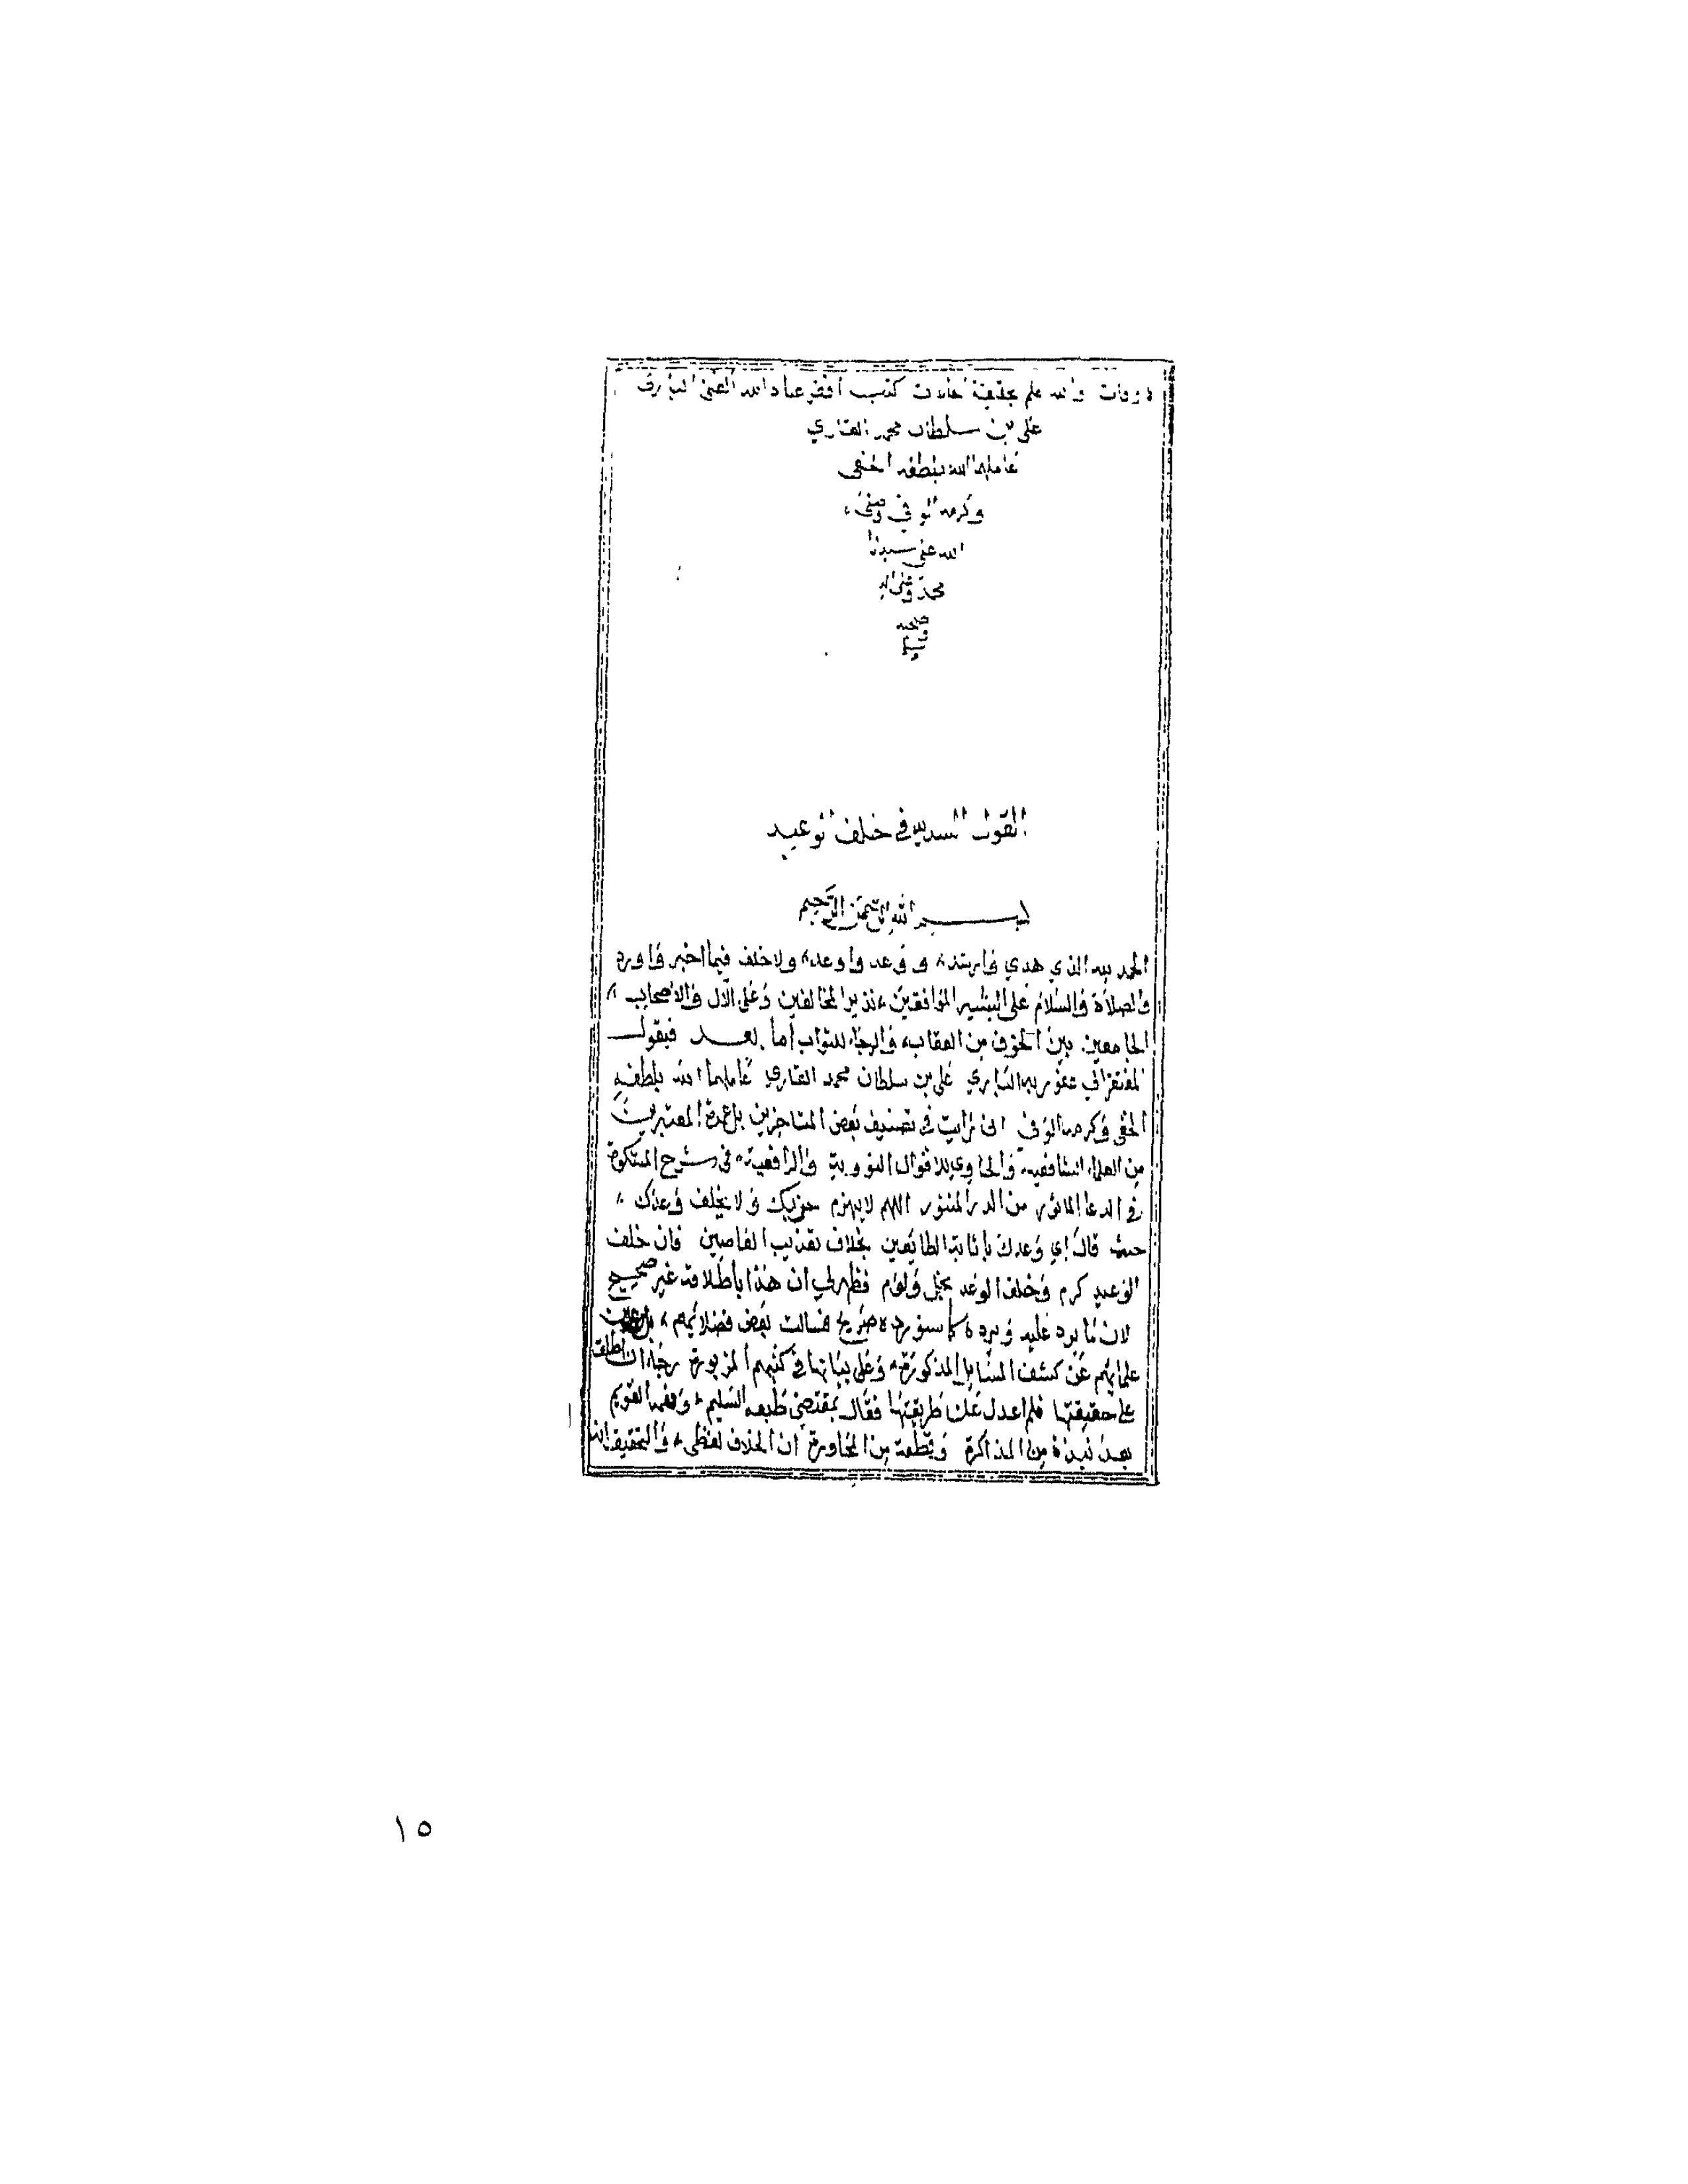 والله اعلم بحقيقة الحالات كتبه افقر عباد الله الغني الباري
علي بن سلطان محمد القاري
عاملهما الله بلطفه الخفي
وكرمه الوفي وصلى
الله على سيدنا
محمد وعلى اله
وصحبه
وسلم
القول السديد في خلف الوعيد
بسم الله الرحمن الرحيم
الحمد لله الذي هدي وارشد، ووعد واوعد، ولا خلف فيما اخبر واورد
والصلاة والسلام على البشير الموافقين، نذير المخالفين وعلى الآل والاصحاب،
الجامعين بين الخوف من العقاب، والرجاء للثواب اما بعد فيقول
المفتقر الي عفو ربه الباري علي بن سلطان محمد القاري عاملهما الله بلطفه
الخفي وكرمه الوفي اني رايت في تصنيف بعض المتاخرين بل عمدة المعتبرين
من العلماء الشافعية، والحاوي للاقوال النووية والرافعية، في شرح المشكوة
في الدعا الماثور من الدر المنثور اللهم لا يهزم حزبك ولا يخلف وعدك،
حيث قال اي وعدك باثابة الطايعين بخلاف تعذيب العاصين فان خلف
الوعيد كرم وخلف الوعد بخل ولوم فظهر لي ان هذا باطلاقه غير صحيح
لان ما يرد عليه ويرده كما سنورده صريح فسالت بعض فضلائهم، بل
علمائهم عن كشف المسايل المذكورة، وعلى بيانها في كتبهم المزبورة رجاء ان اطلع
على حقيقتها فلم اعدل عن طريقتها فقال بمقتضى طبعه السليم، وفهمه القويم
بعد نبذة من المذاكرة وقطعة من المحاورة ان الخلاف لفظي، والتحقيق ان
١٥